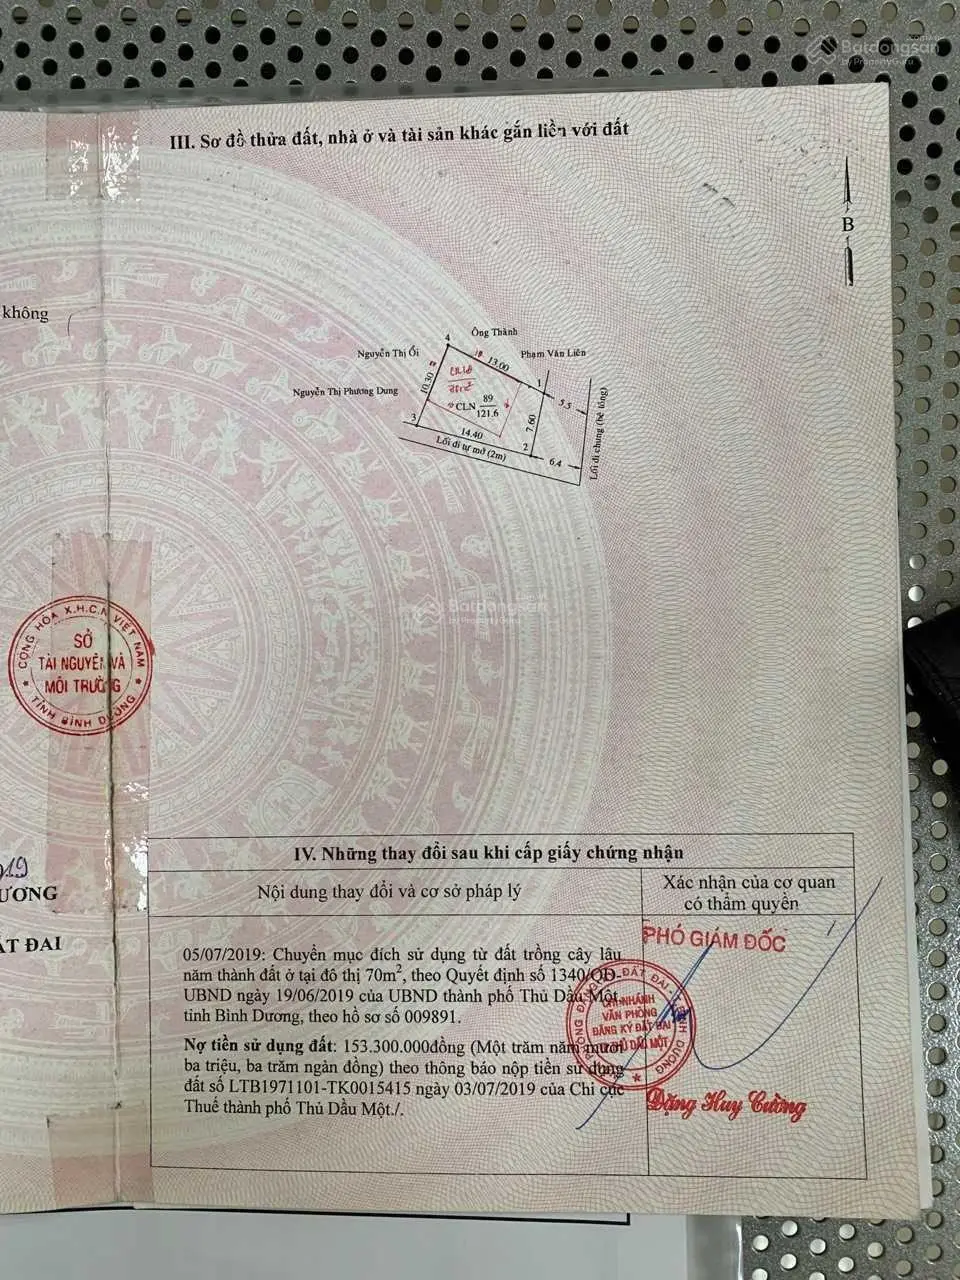 Batdongsan
.com.vn
by PropertyGuru
III. Sơ đồ thửa đất, nhà ở và tài sản khác gắn liền với đất
B
không
4
Ông Thành
Nguyễn Thị Ối
13.00
Phạm Văn Liên
Nguyễn Thị Phương Dung
10.30
1
5.5
CLN 89
121.6
7.60
3
14.40
2
Lối đi tự mở (2m)
6.4
Lối đi chung (bê tông)
Batdongsan
by PropertyGuru
CỘNG HÒA X.H.C.N VIỆT NAM
SỞ
TÀI NGUYÊN VÀ
MÔI TRƯỜNG
TỈNH BÌNH DƯƠNG
019
ƯƠNG
ẤT ĐAI
IV. Những thay đổi sau khi cấp giấy chứng nhận
Nội dung thay đổi và cơ sở pháp lý
Xác nhận của cơ quan
có thẩm quyền
PHÓ GIÁM ĐỐC
05/07/2019: Chuyển mục đích sử dụng từ đất trồng cây lâu
năm thành đất ở tại đô thị 70m2, theo Quyết định số 1340/QĐ-
UBND ngày 19/06/2019 của UBND thành phố Thủ Dầu Một,
tỉnh Bình Dương, theo hồ sơ số 009891.
Nợ tiền sử dụng đất: 153.300.000đồng (Một trăm năm mươi
ba triệu, ba trăm ngàn đồng) theo thông báo nộp tiền sử dụng
đất số LTB1971101-TK0015415 ngày 03/07/2019 của Chi cục
Thuế thành phố Thủ Dầu Một./.
CHI NHÁNH
VĂN PHÒNG
ĐĂNG KÝ ĐẤT ĐAI
THỦ DẦU MỘT
Đặng Huy Cường